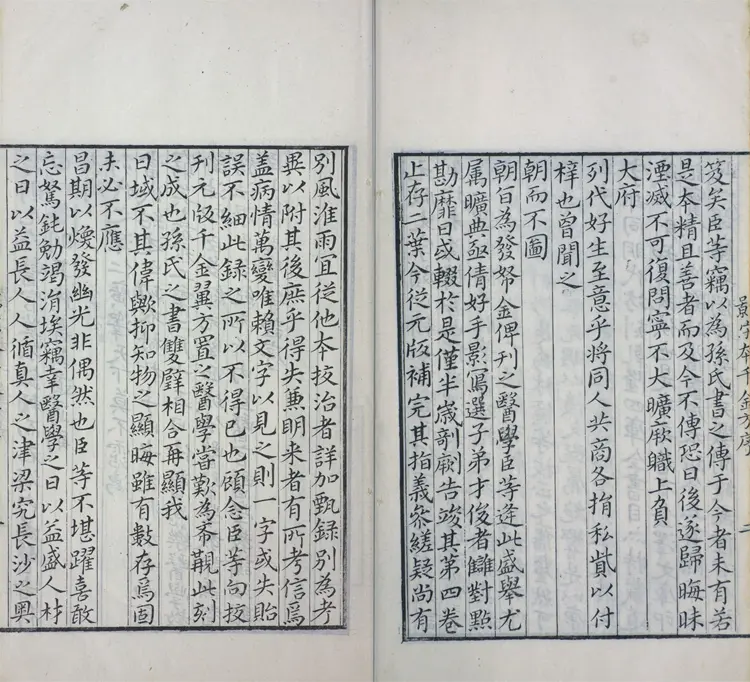 笈矣臣等竊以為孫氏書之傳于今者未有若
是本精且善者而及今不傳恐日後遂歸晦昧
湮滅不可復問寧不大曠厥職上負
大府
列代好生至意乎將同人共商各捐私貲以付
梓也曾聞之
朝而不圖
朝旨為發帑金俾刊之醫學臣等逢此盛舉尤
属曠典亟倩好手影寫選子弟才俊者讎對點
勘靡日或輟於是僅半歲剞劂告竣其第四卷
止存二葉今從元版補完其指義參縒疑尚有
別風淮雨宜從他本挍治者詳加甄錄別為考
異以附其後庶乎得失兼明來者有所考信焉
蓋病情萬變唯賴文字以見之則一字或失貽
誤不細此錄之所以不得已也顧念臣等向挍
刊元版千金翼方置之醫學當歎為希覯此刻
之成也孫氏之書雙璧相合再顯我
日域不其偉歟抑知物之顯晦雖有數存焉固
未必不應
昌期以煥發幽光非偶然也臣等不堪躍喜敢
忘駑鈍勉竭涓埃竊幸醫學之日以益盛人材
之日以益長人人循真人之津梁究長沙之奧